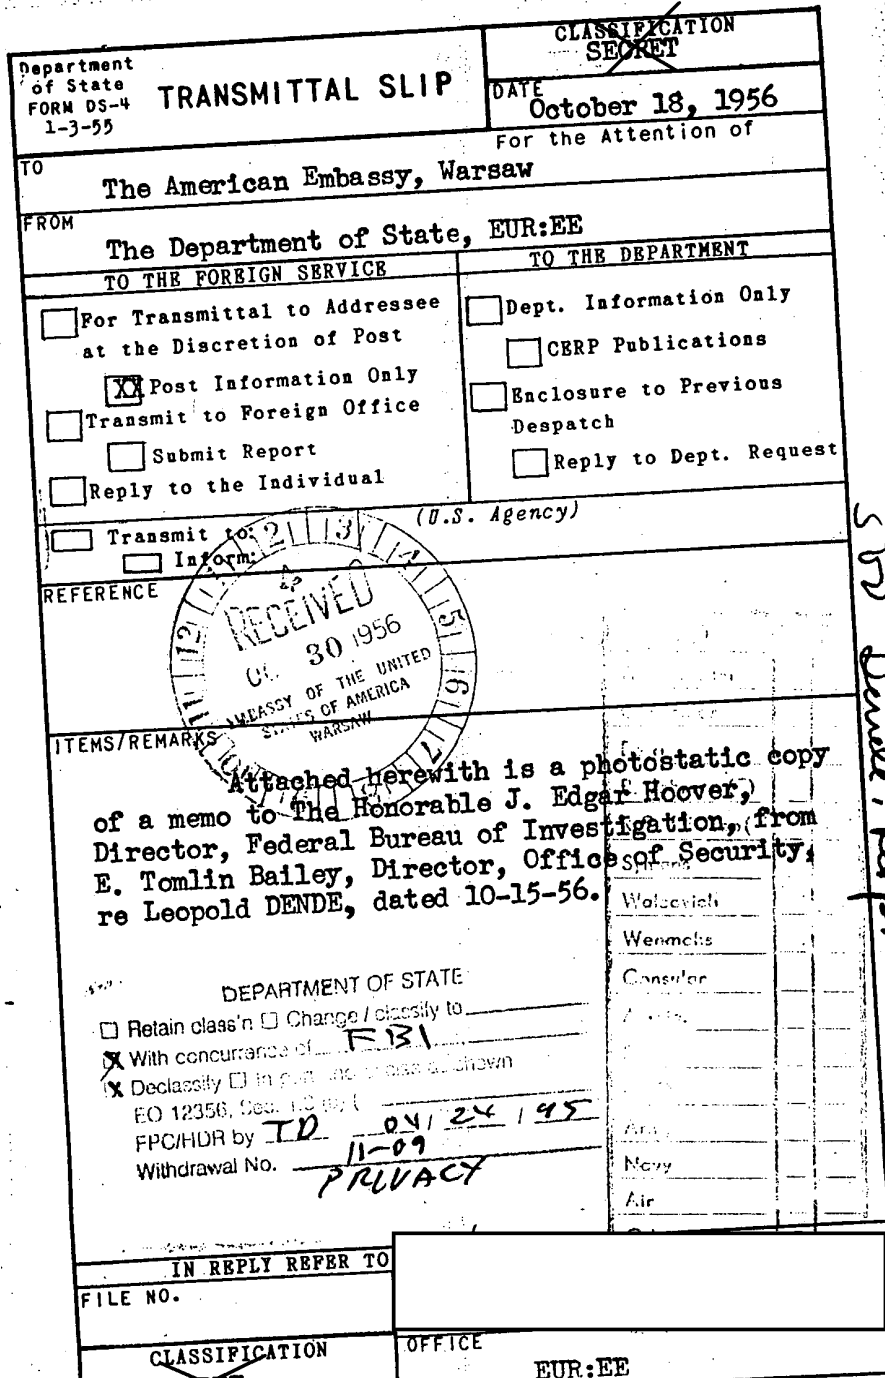 CLASSIFICATION
SECRET
Department
of State
FORM DS-4
1-3-55
TRANSMITTAL SLIP
DATE
October 18, 1956
For the Attention of
TO
The American Embassy, Warsaw
FROM
The Department of State, EUR:EE
TO THE FOREIGN SERVICE
TO THE DEPARTMENT
For Transmittal to Addressee
at the Discretion of Post
XX Post Information Only
Transmit to Foreign Office
Submit Report
Reply to the Individual
Dept. Information Only
CERP Publications
Enclosure to Previous
Despatch
Reply to Dept. Request
(U.S. Agency)
Transmit to:
Inform:
REFERENCE
12 2 3 4 5 6 7 11
RECEIVED
30 1956
EMBASSY OF THE UNITED
STATES OF AMERICA
WARSAW
ITEMS/REMARKS
Attached herewith is a photostatic copy
of a memo to The Honorable J. Edgar Hoover,
Director, Federal Bureau of Investigation, from
E. Tomlin Bailey, Director, Office of Security,
re Leopold DENDE, dated 10-15-56.
Wenmohs
Consular
Navy
Air
DEPARTMENT OF STATE
☐ Retain class'n ☐ Change / classify to
X With concurrance of FBI
X Declassify ☐ in
EO 12356, Sec.
FPC/HDR by TD 04/24/95
Withdrawal No. 11-09
PRIVACY
IN REPLY REFER TO
FILE NO.
CLASSIFICATION
OFFICE
EUR:EE